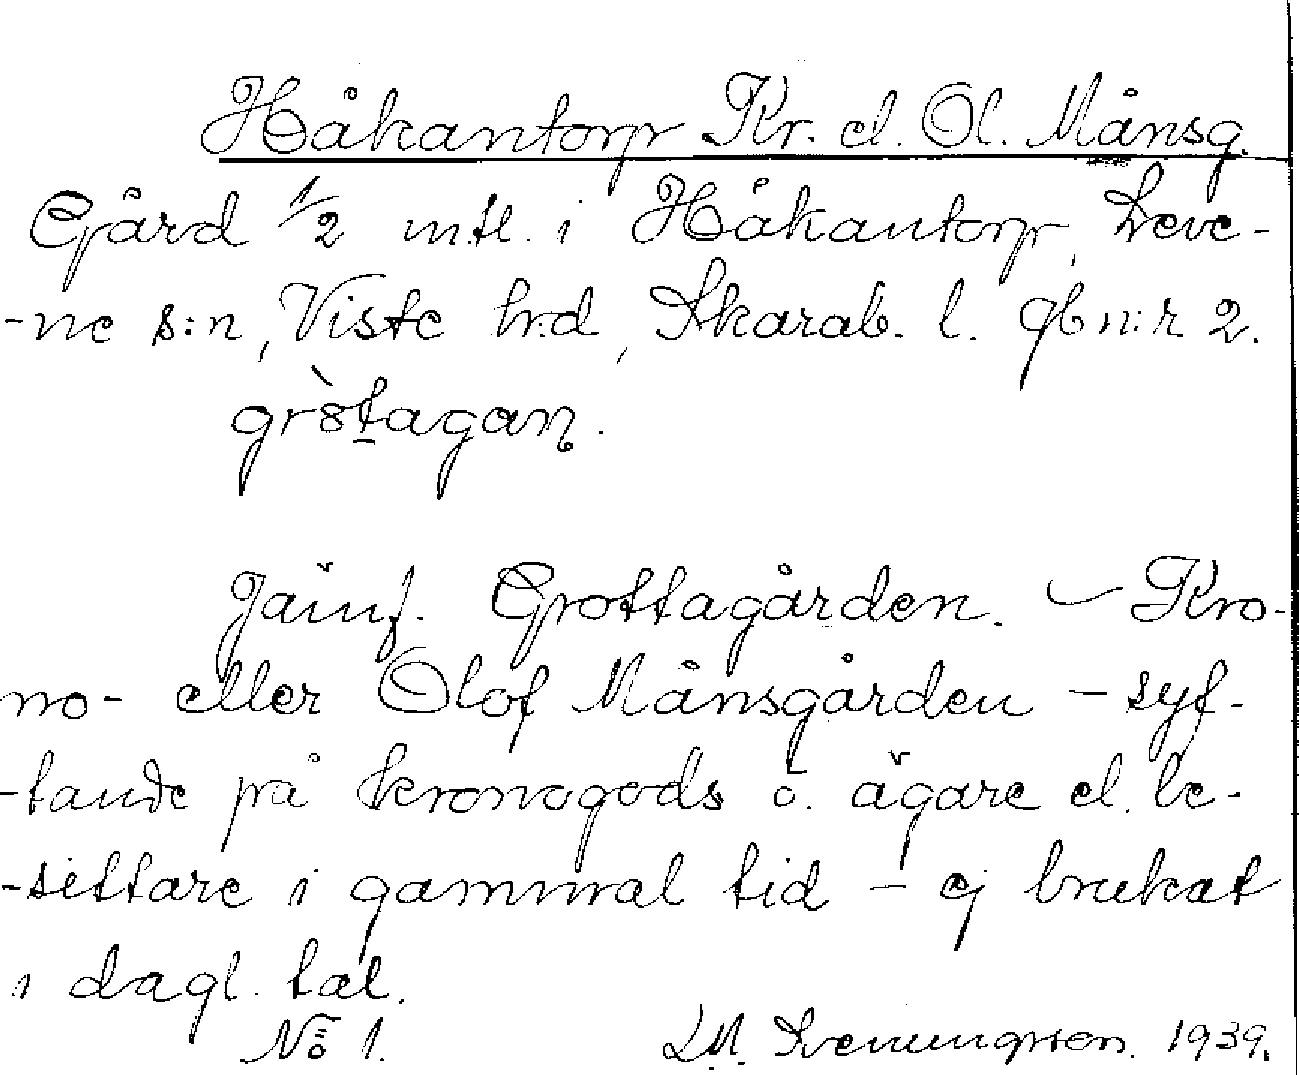 Håkantorp Kr. el. Ol. Månsg.
Gård 1/2 mtl. i Håkantorp, Leve-
-ne s:n, Viste hrd, Skarab. l. Jb n:r 2.
Jämf. Grottagården. — Kro-
no- eller Olof Månsgården – syf-
-tande på kronogods o. ägare el. be-
-sittare i gammal tid – ej brukat
i dagl. tal.
No 1. Svenungsson. 1939.